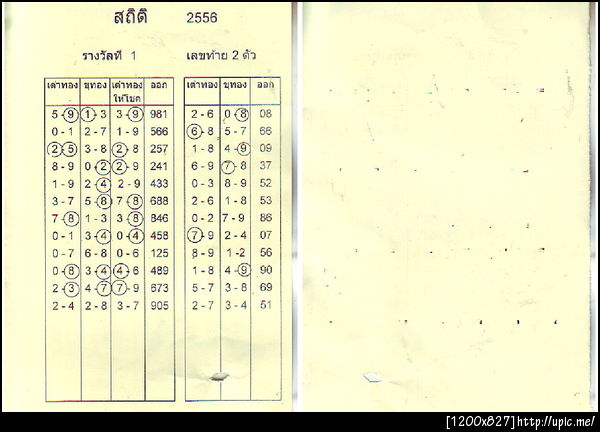 สถิติ 2556
รางวัลที่ 1 เลขท้าย 2 ตัว
เต่าทอง ขุทอง เต่าทอง ให้โชค ออก เต่าทอง ขุทอง ออก
5-9 1-3 3-9 981 2-6 0-8 08
0-1 2-7 1-9 566 6-8 5-7 66
2-5 3-8 2-8 257 1-8 4-9 09
8-9 0-2 2-9 241 6-9 7-8 37
1-9 2-4 2-9 433 0-3 8-9 52
3-7 5-8 7-8 688 2-6 1-8 53
7-8 1-3 3-8 846 0-2 7-9 86
0-1 3-4 0-4 458 7-9 2-4 07
0-7 6-8 0-6 125 8-9 1-2 56
0-8 3-4 4-6 489 1-8 4-9 90
2-3 4-7 7-9 673 5-7 3-8 69
2-4 2-8 3-7 905 2-7 3-4 51
[1200x827]http://upic.me/